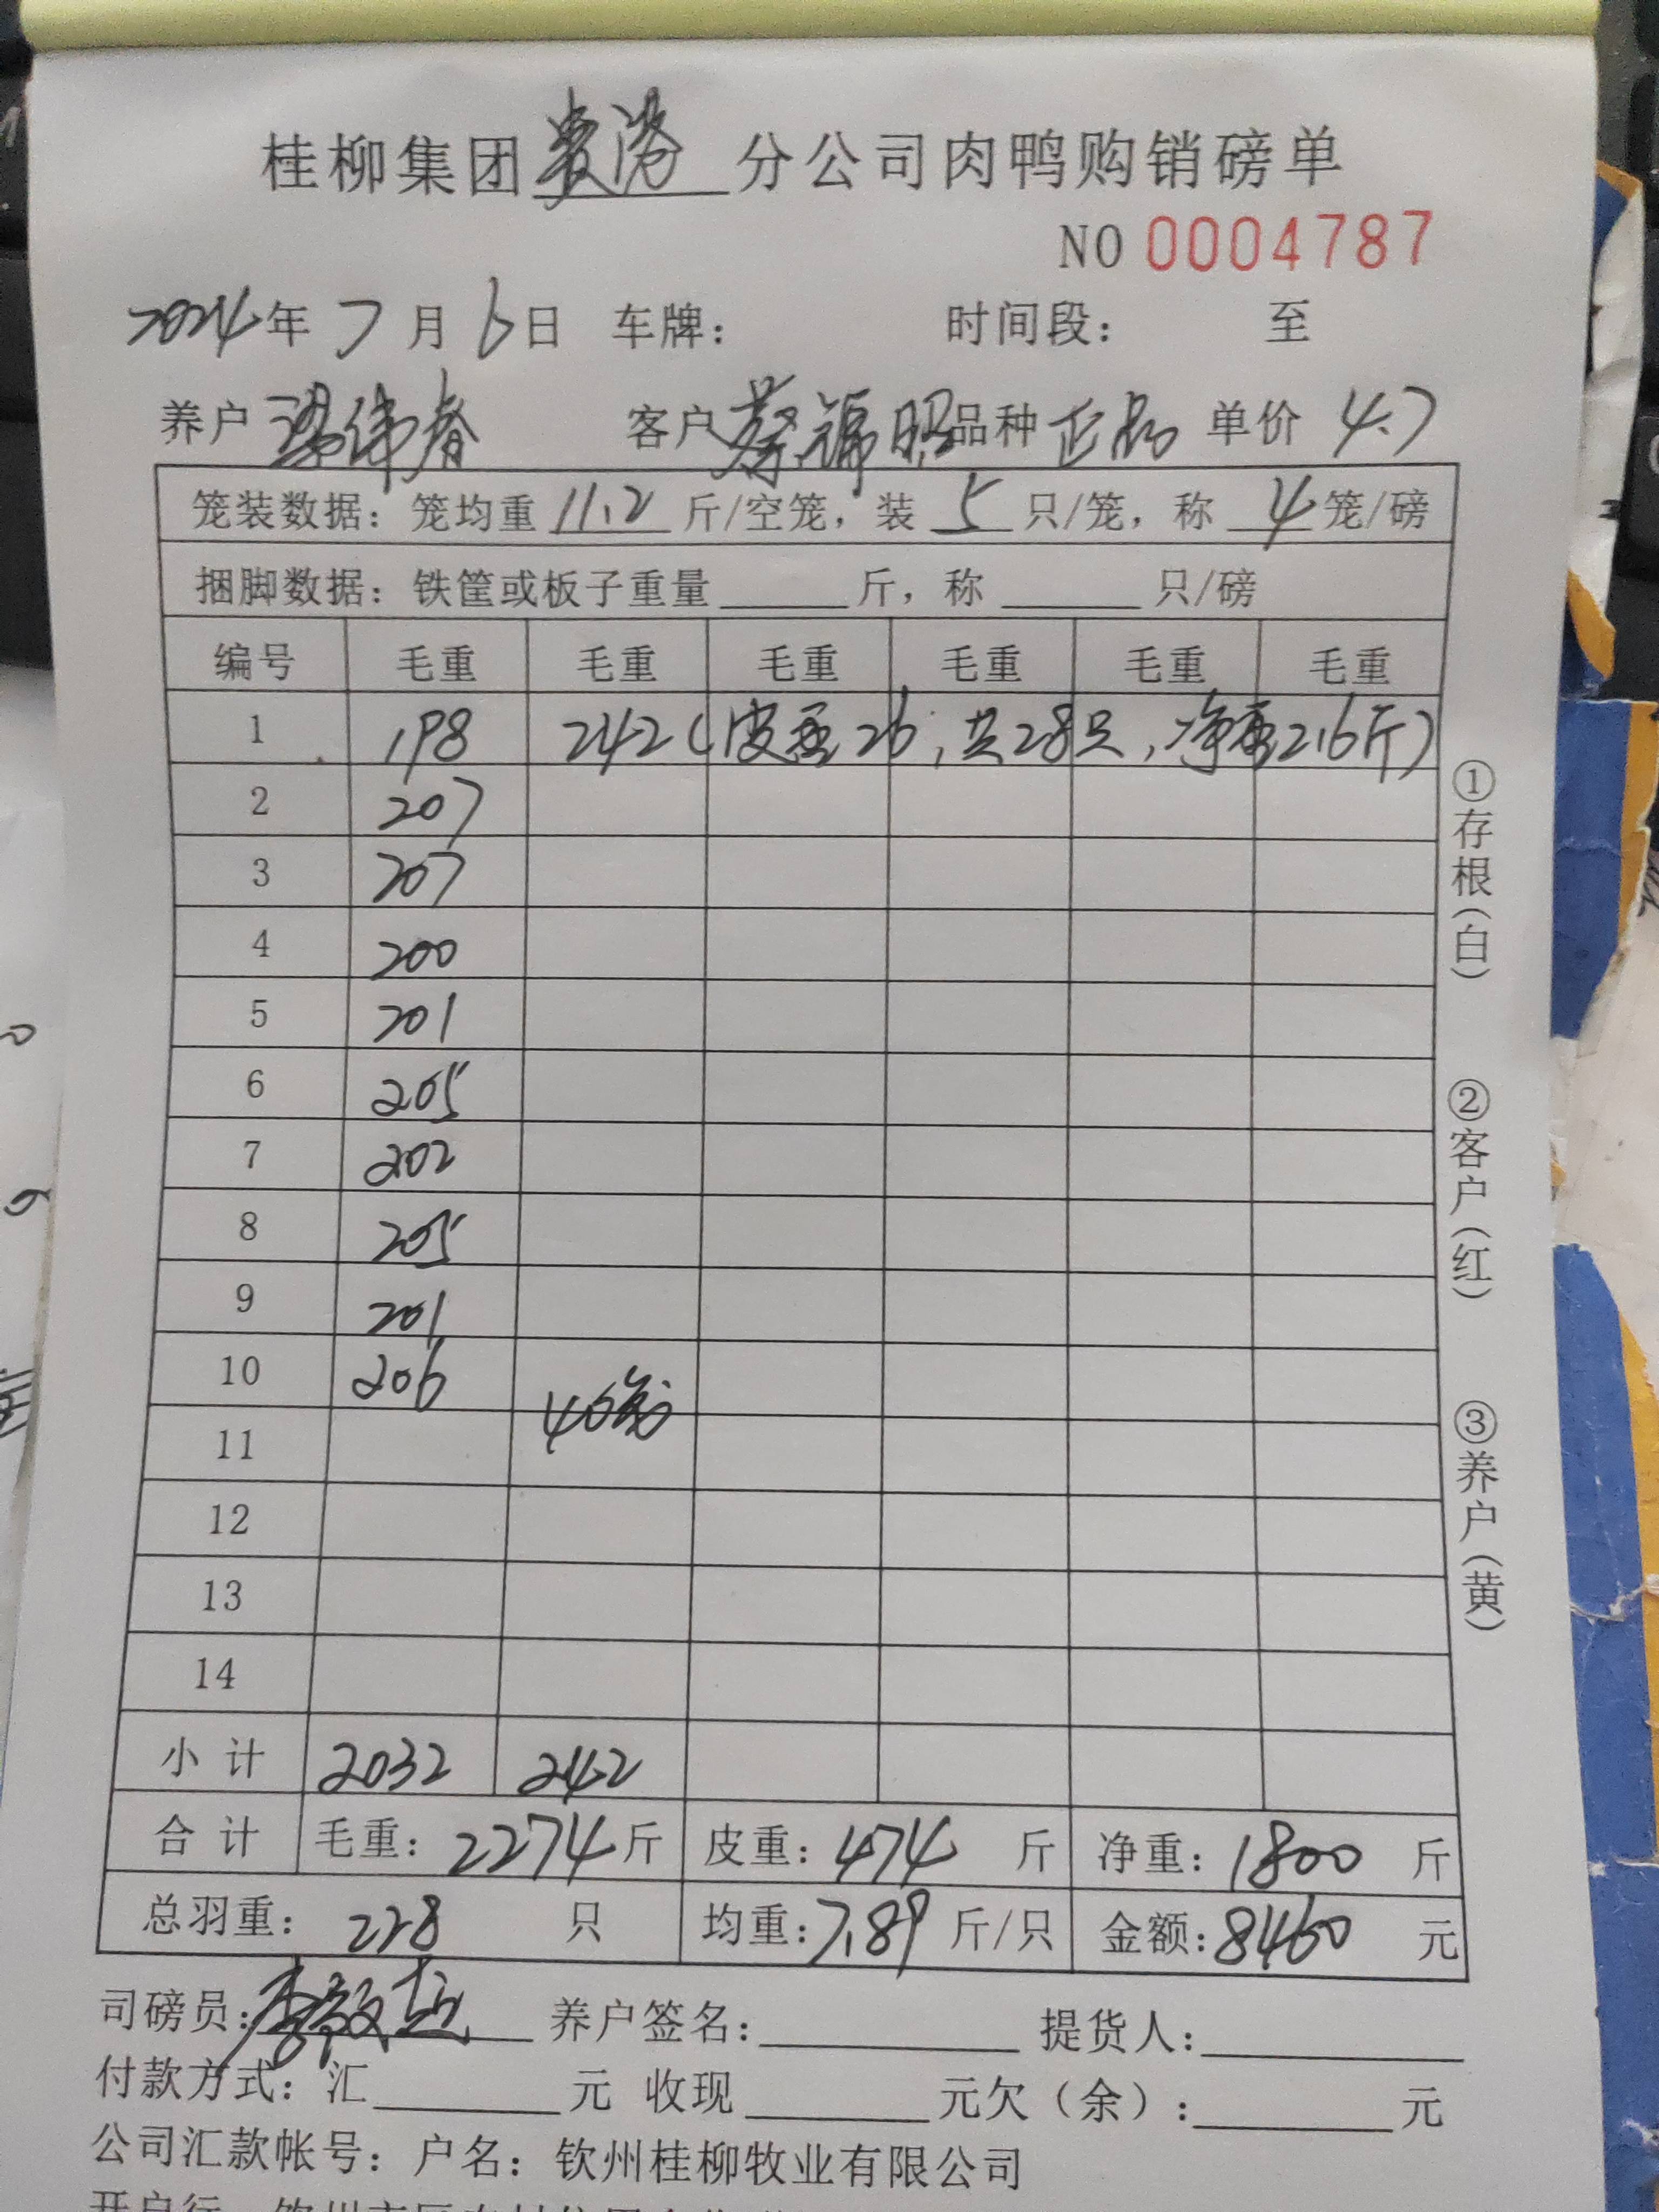 桂柳集团贵港分公司肉鸭购销磅单
NO 0004787
2024年7月6日 车牌: 时间段: 至
养户 梁伟春 客户 蔡锦昭 品种 正品 单价 4.7
笼装数据: 笼均重 11.2 斤/空笼, 装 5 只/笼, 称 4 笼/磅
捆脚数据: 铁筐或板子重量______斤, 称______只/磅
编号 毛重 毛重 毛重 毛重 毛重 毛重
1 198 242(皮重26,共28只,净重216斤)
2 207
3 207
4 200
5 201
6 205
7 202
8 205
9 201
10 206
40笼
11
12
13
14
小计 2032 242
合计 毛重: 2274斤 皮重: 474 斤 净重: 1800 斤
总羽重: 228 只 均重: 7.89 斤/只 金额: 8460 元
司磅员: 李敏超 养户签名: 提货人:
付款方式: 汇______元 收现______元欠(余):______元
公司汇款帐号: 户名: 钦州桂柳牧业有限公司
①存根(白)
②客户(红)
③养户(黄)